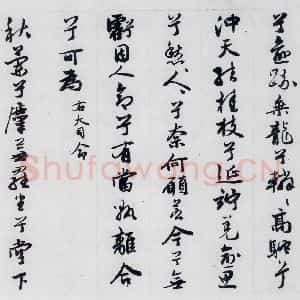 兮愈疏乘龍兮轔〻高馳兮
沖天結桂枝兮延竚羌愈思
兮愁人〻兮奈何願若今兮無
虧固人命兮有當孰離合
兮可為 右大司命
秋蘭兮蘪蕪羅生兮堂下
Shufawang.CN